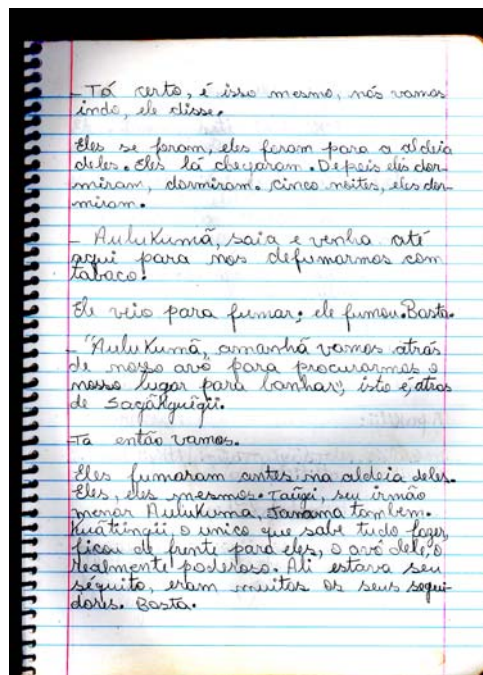 - Tá certo, é isso mesmo, nós vamos
indo, ele disse.
Eles se foram, eles foram para a aldeia
deles. Eles lá chegaram. Depois eles dor-
miram, dormiram. cinco noites, eles dor-
miram.
- Aulukumã, saia e venha até
aqui para nos defumarmos com
tabaco!
Ele veio para fumar; ele fumou. Basta.
- "Aulukumã, amanhã vamos atrás
de nosso avô para procurarmos o
nosso lugar para banhar", isto é, atras
de Sagãkguégü.
- Ta então vamos.
Eles fumaram antes na aldeia deles.
Eles, eles mesmos. Taũgi, seu irmão
menor Aulukuma, Janama tambem.
Kuãtüngü, o unico que sabe tudo fazer,
ficou de frente para eles, o avô dele, o
realmente poderoso. Ali estava seu
séquito, eram muitos os seus segui-
dores. Basta.